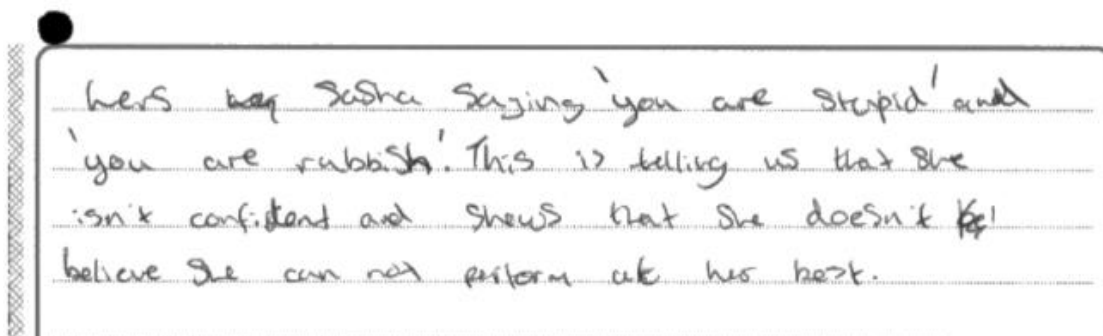 hers Sasha saying 'you are stupid' and
'you are rubbish'. This is telling us that she
isn't confident and shows that she doesn't
believe she can not perform at her best.